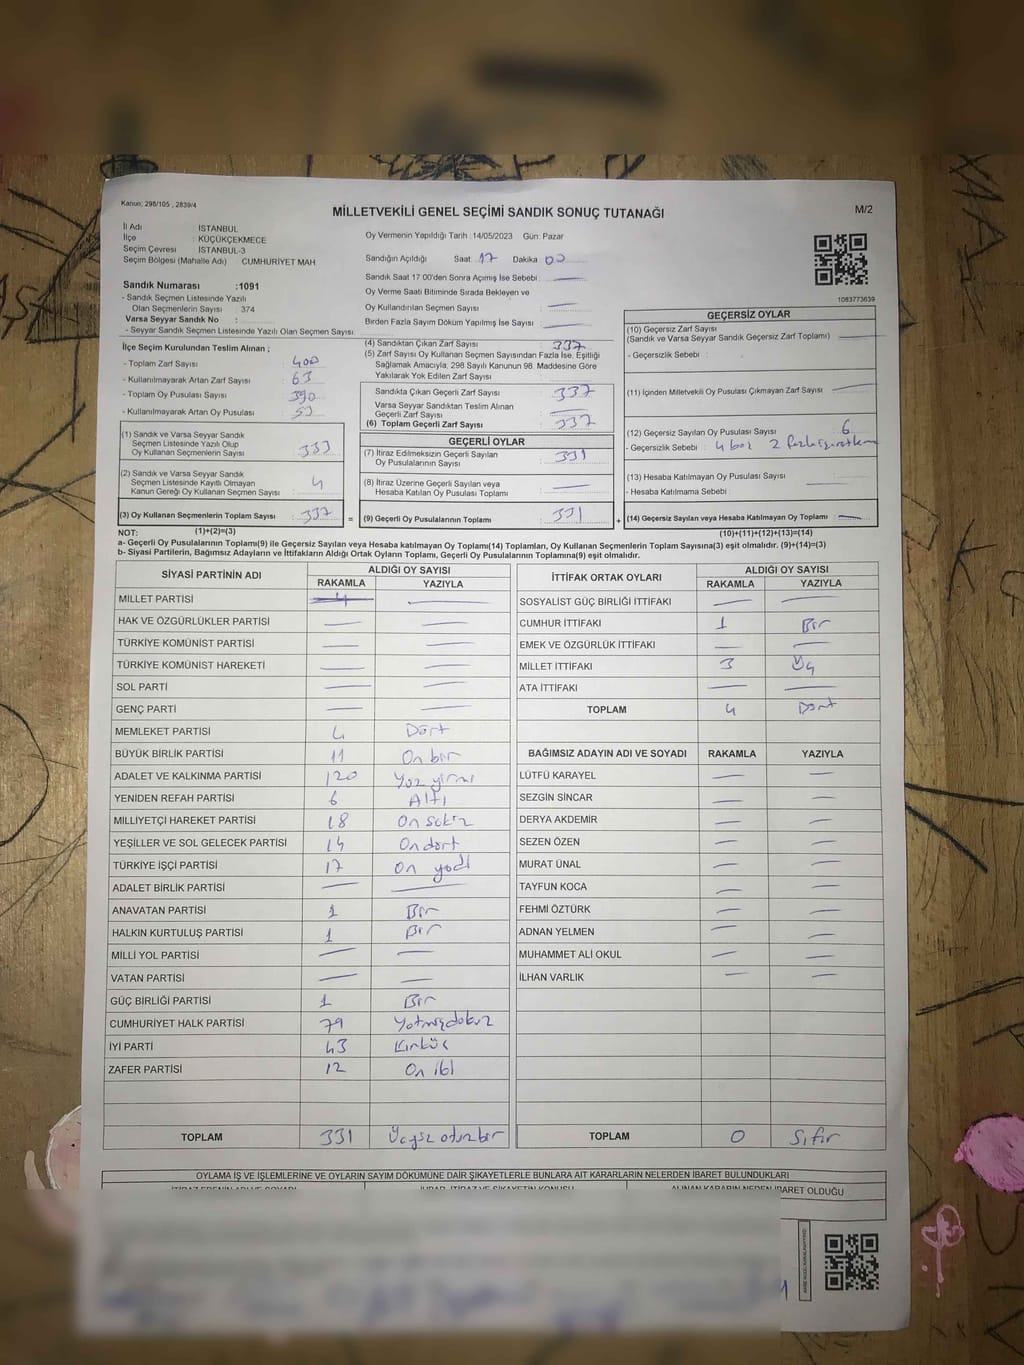 Kanun; 298/105 , 2839/4
MİLLETVEKİLİ GENEL SEÇİMİ SANDIK SONUÇ TUTANAĞI
M/2
İl Adı İSTANBUL
İlçe : KÜÇÜKÇEKMECE
Seçim Çevresi İSTANBUL-3
Seçim Bölgesi (Mahalle Adı) CUMHURİYET MAH.
Oy Vermenin Yapıldığı Tarih : 14/05/2023 Gün: Pazar
Sandığın Açıldığı Saat 17 Dakika 00
Sandık Saat 17:00'den Sonra Açımış İse Sebebi :
Oy Verme Saati Bitiminde Sırada Bekleyen ve
Oy Kullandırılan Seçmen Sayısı
Birden Fazla Sayım Döküm Yapılmış İse Sayısı :
Sandık Numarası :1091
- Sandık Seçmen Listesinde Yazılı
Olan Seçmenlerin Sayısı : 374
Varsa Seyyar Sandık No :
- Seyyar Sandık Seçmen Listesinde Yazılı Olan Seçmen Sayısı
1083773639
İlçe Seçim Kurulundan Teslim Alınan ;
- Toplam Zarf Sayısı 400
- Kullanılmayarak Artan Zarf Sayısı : 63
- Toplam Oy Pusulası Sayısı 390
- Kullanılmayarak Artan Oy Pusulası
(1) Sandık ve Varsa Seyyar Sandık
Seçmen Listesinde Yazılı Olup
Oy Kullanan Seçmenlerin Sayısı 333
(2) Sandık ve Varsa Seyyar Sandık
Seçmen Listesinde Kayıtlı Olmayan
Kanun Gereği Oy Kullanan Seçmen Sayısı 4
(3) Oy Kullanan Seçmenlerin Toplam Sayısı : 337
(4) Sandıktan Çıkan Zarf Sayısı : 337
(5) Zarf Sayısı Oy Kullanan Seçmen Sayısından Fazla İse, Eşitliği
Sağlamak Amacıyla, 298 Sayılı Kanunun 98. Maddesine Göre
Yakılarak Yok Edilen Zarf Sayısı
Sandıkta Çıkan Geçerli Zarf Sayısı : 337
Varsa Seyyar Sandıktan Teslim Alınan
Geçerli Zarf Sayısı
(6) Toplam Geçerli Zarf Sayısı 337
GEÇERLİ OYLAR
(7) İtiraz Edilmeksizin Geçerli Sayılan
Oy Pusulalarının Sayısı 331
(8) İtiraz Üzerine Geçerli Sayılan veya
Hesaba Katılan Oy Pusulası Toplamı
= (9) Geçerli Oy Pusulalarının Toplamı 331
GEÇERSİZ OYLAR
(10) Geçersiz Zarf Sayısı
(Sandık ve Varsa Seyyar Sandık Geçersiz Zarf Toplamı)
- Geçersizlik Sebebi :
(11) İçinden Milletvekili Oy Pusulası Çıkmayan Zarf Sayısı
(12) Geçersiz Sayılan Oy Pusulası Sayısı 6
- Geçersizlik Sebebi : 4 boş 2 fazla
(13) Hesaba Katılmayan Oy Pusulası Sayısı
- Hesaba Katılmama Sebebi
+ (14) Geçersiz Sayılan veya Hesaba Katılmayan Oy Toplamı
NOT: (1)+(2)=(3) (10)+(11)+(12)+(13)=(14)
a- Geçerli Oy Pusulalarının Toplamı(9) ile Geçersiz Sayılan veya Hesaba katılmayan Oy Toplamı(14) Toplamları, Oy Kullanan Seçmenlerin Toplam Sayısına(3) eşit olmalıdır. (9)+(14)=(3)
b- Siyasi Partilerin, Bağımsız Adayların ve İttifakların Aldığı Ortak Oyların Toplamı, Geçerli Oy Pusulalarının Toplamına(9) eşit olmalıdır.
SİYASİ PARTİNİN ADI ALDIĞI OY SAYISI
RAKAMLA YAZIYLA
MİLLET PARTİSİ
HAK VE ÖZGÜRLÜKLER PARTİSİ
TÜRKİYE KOMÜNİST PARTİSİ
TÜRKİYE KOMÜNİST HAREKETİ
SOL PARTİ
GENÇ PARTİ
MEMLEKET PARTİSİ 4 Dört
BÜYÜK BİRLİK PARTİSİ 11 On bir
ADALET VE KALKINMA PARTİSİ 120 Yüz yirmi
YENİDEN REFAH PARTİSİ 6 Altı
MİLLİYETÇİ HAREKET PARTİSİ 18 On sekiz
YEŞİLLER VE SOL GELECEK PARTİSİ 14 On dört
TÜRKİYE İŞÇİ PARTİSİ 17 On yedi
ADALET BİRLİK PARTİSİ
ANAVATAN PARTİSİ 1 Bir
HALKIN KURTULUŞ PARTİSİ 1 Bir
MİLLİ YOL PARTİSİ
VATAN PARTİSİ
GÜÇ BİRLİĞİ PARTİSİ 1 Bir
CUMHURİYET HALK PARTİSİ 79 Yetmişdokuz
İYİ PARTİ 43 Kırküç
ZAFER PARTİSİ 12 On iki
TOPLAM 331 Üçyüz otuzbir
İTTİFAK ORTAK OYLARI ALDIĞI OY SAYISI
RAKAMLA YAZIYLA
SOSYALİST GÜÇ BİRLİĞİ İTTİFAKI
CUMHUR İTTİFAKI 1 Bir
EMEK VE ÖZGÜRLÜK İTTİFAKI
MİLLET İTTİFAKI 3 Üç
ATA İTTİFAKI
TOPLAM 4 Dört
BAĞIMSIZ ADAYIN ADI VE SOYADI RAKAMLA YAZIYLA
LÜTFÜ KARAYEL
SEZGİN SİNCAR
DERYA AKDEMİR
SEZEN ÖZEN
MURAT ÜNAL
TAYFUN KOCA
FEHMİ ÖZTÜRK
ADNAN YELMEN
MUHAMMET ALİ OKUL
İLHAN VARLIK
TOPLAM 0 Sıfır
OYLAMA İŞ VE İŞLEMLERİNE VE OYLARIN SAYIM DÖKÜMÜNE DAİR ŞİKAYETLERLE BUNLARA AİT KARARLARIN NELERDEN İBARET BULUNDUKLARI
ALINAN KARARIN NEDEN İBARET OLDUĞU